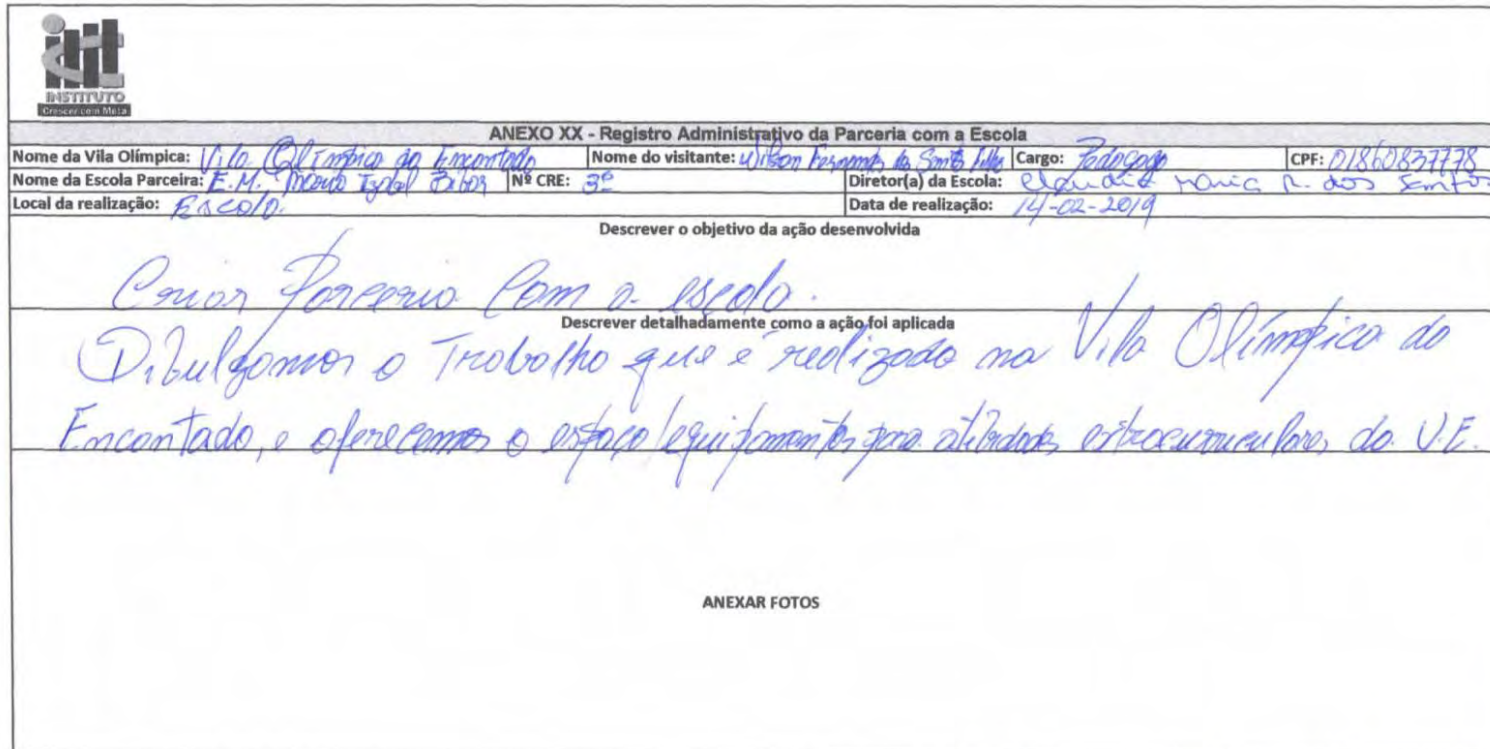 INSTITUTO
Crescer com Meta
ANEXO XX - Registro Administrativo da Parceria com a Escola
Nome da Vila Olímpica: Vila Olímpica do Encantado Nome do visitante: Wilson Fernandes dos Santos Filho Cargo: Pedagogo CPF: 01860837778
Nome da Escola Parceira: E.M. Nº CRE: 3ª Diretor(a) da Escola: Claudia Maria R. dos Santos
Local da realização: Escola. Data de realização: 14-02-2019
Descrever o objetivo da ação desenvolvida
Criar Parceria Com a escola.
Descrever detalhadamente como a ação foi aplicada
Dibulgamos o Trabalho que é realizado na Vila Olímpica do
Encantado, e oferecemos o espaço/equipamentos para atibidades extracurriculares da U.E.
ANEXAR FOTOS